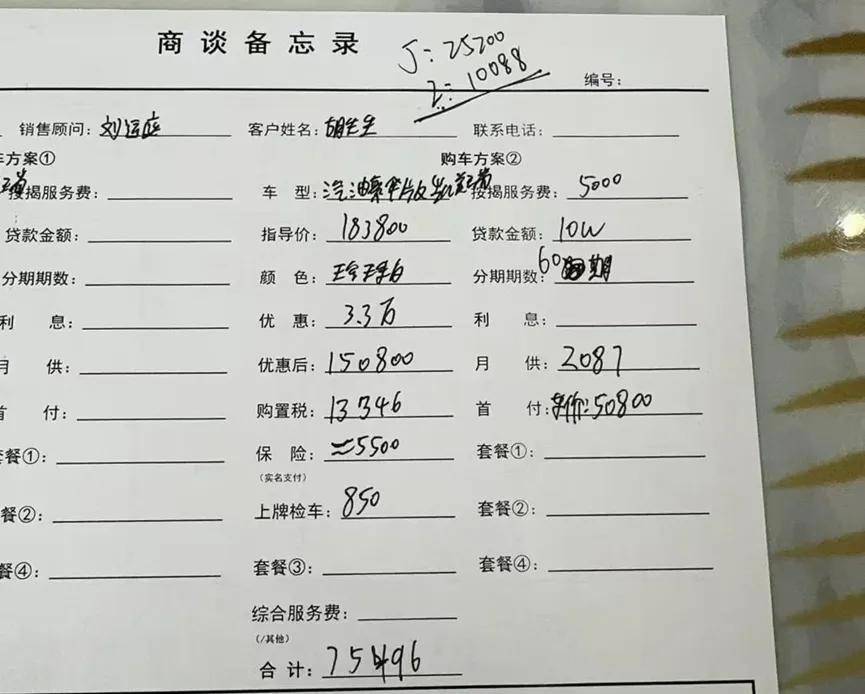 商谈备忘录
J: 25200
2: 10088
编号:
销售顾问: 刘运庭 客户姓名: 胡先生 联系电话:
车方案① 购车方案②
按揭服务费: 车 型: 汽油 按揭服务费: 5000
贷款金额: 指导价: 183800 贷款金额: 10W
分期期数: 颜 色: 珍珠白 分期期数: 60期
利 息: 优 惠: 3.3万 利 息:
月 供: 优惠后: 150800 月 供: 2087
首 付: 购置税: 13346 首 付: 车价: 50800
套餐①: 保 险: ≈5500 套餐①:
(实名支付)
餐②: 上牌检车: 850 套餐②:
餐④: 套餐③: 套餐④:
综合服务费:
(/其他)
合 计: 75496